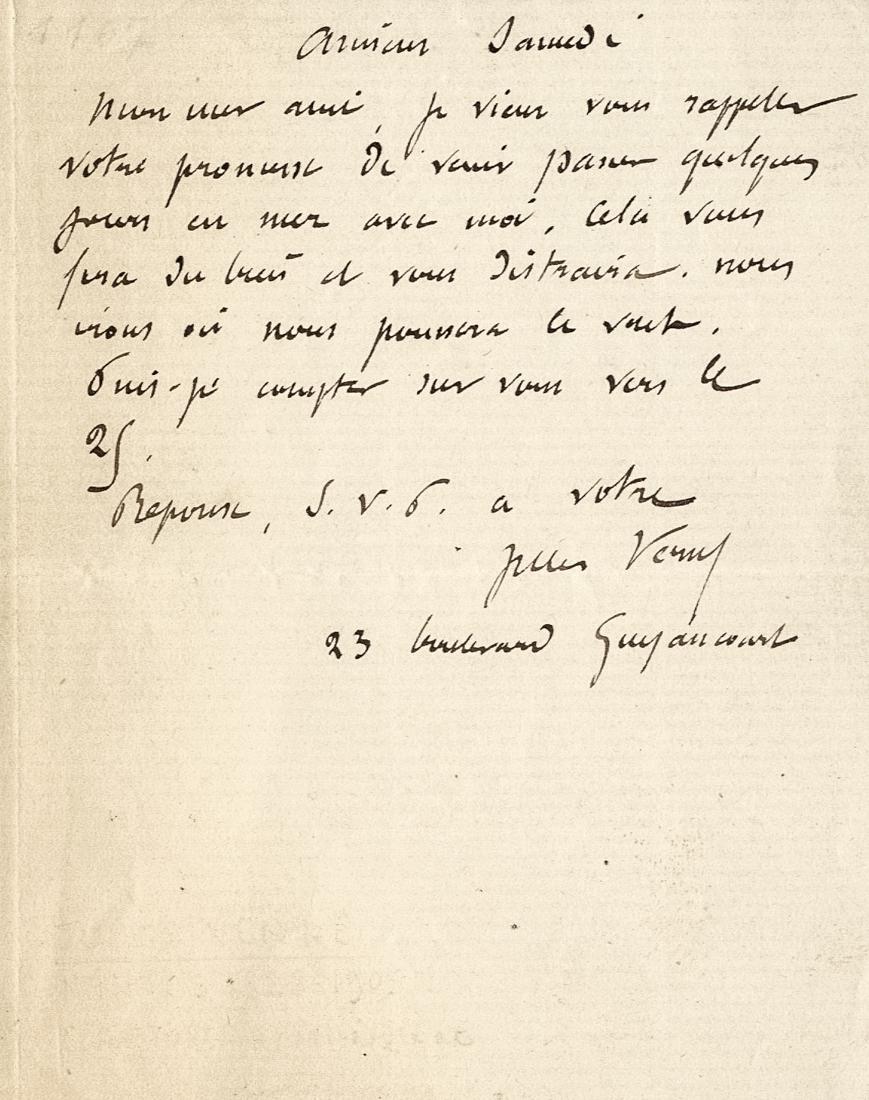 Amiens Samedi
Mon cher ami, je viens vous rappeller
votre promesse de venir passer quelques
jours en mer avec moi, Cela vous
fera du bien et vous distraira. nous
irons où nous poussera le vent.
Puis-je compter sur vous vers le
25.
Réponse, S. V. P. a votre
Jules Verne
23 boulevard Guyancourt